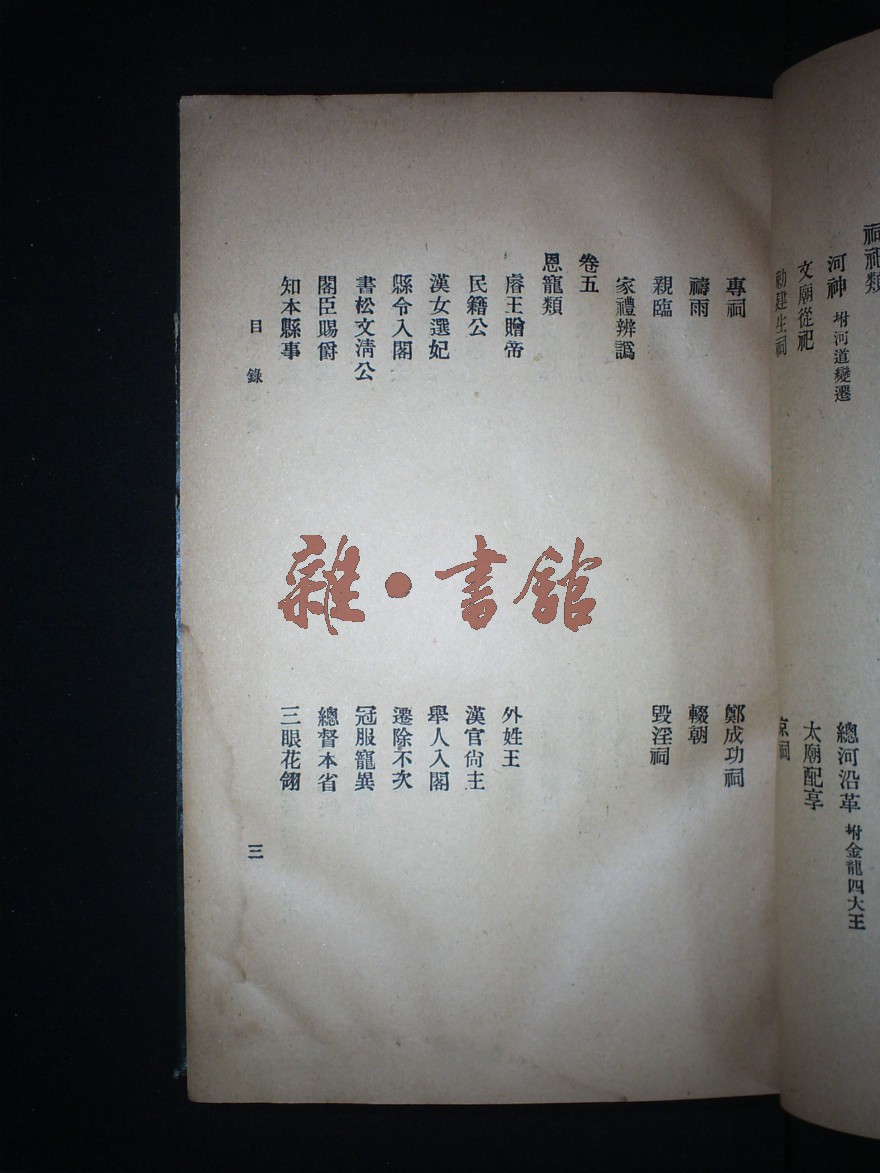 祠祀類
河神 坿河道變遷
總河沿革 坿金龍四大王
文廟從祀
太廟配享
勅建生祠
京祠
專祠
鄭成功祠
禱雨
輟朝
親臨
毀淫祠
家禮辨譌
卷五
恩寵類
睿王贈帝
外姓王
民籍公
漢官尙主
漢女選妃
舉人入閣
縣令入閣
遷除不次
書松文淸公
冠服寵異
閣臣賜爵
總督本省
知本縣事
三眼花翎
目錄
三
雜·書館